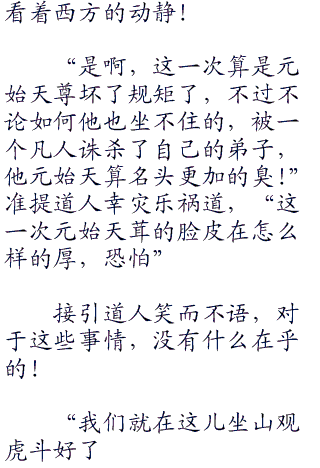 看着西方的动静！
“是啊，这一次算是元
始天尊坏了规矩了，不过不
论如何他也坐不住的，被一
个凡人诛杀了自己的弟子，
他元始天算名头更加的臭！”
准提道人幸灾乐祸道，“这
一次元始天茸的脸皮在怎么
样的厚，恐怕”
接引道人笑而不语，对
于这些事情，没有什么在乎
的！
“我们就在这儿坐山观
虎斗好了